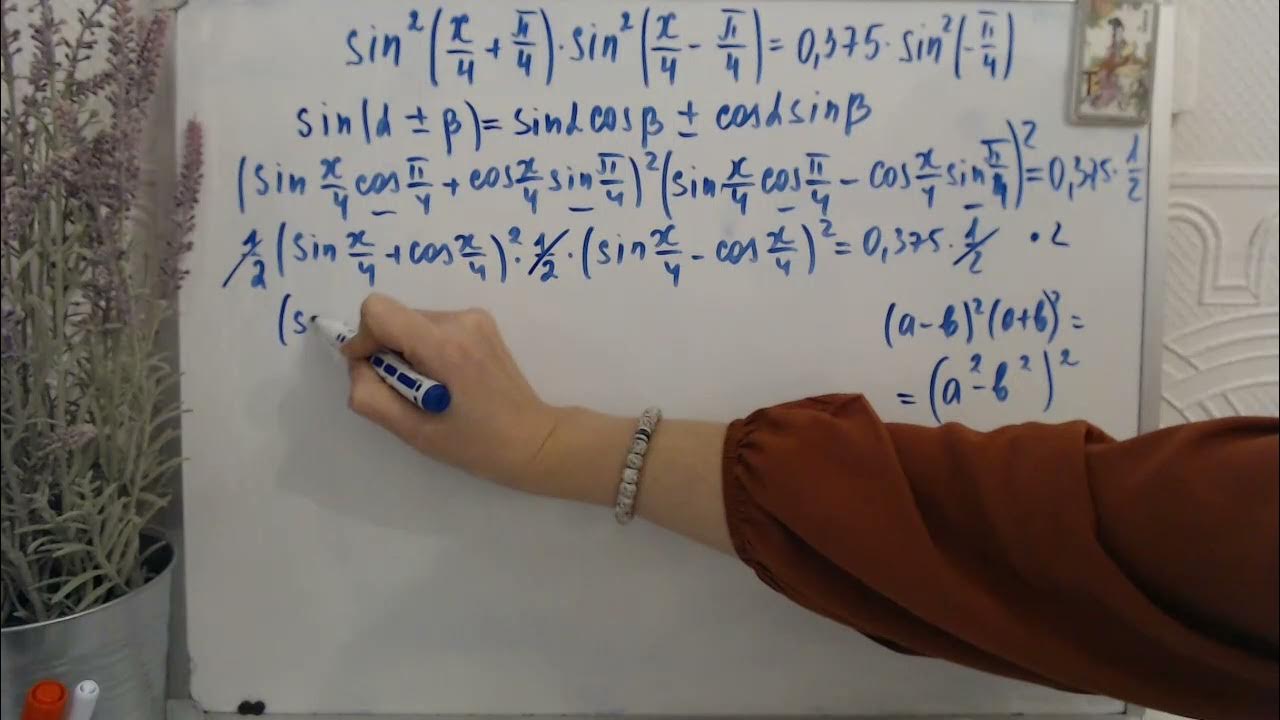 sin²(x/4 + π/4)·sin²(x/4 - π/4) = 0,375·sin²(-π/4)
sin(α ± β) = sinα cosβ ± cosα sinβ
(sin x/4 cos π/4 + cos x/4 sin π/4)² (sin x/4 cos π/4 - cos x/4 sin π/4)² = 0,375·1/2
1/2 (sin x/4 + cos x/4)²·1/2·(sin x/4 - cos x/4)² = 0,375·1/2 ·2
(s
(a-b)²(a+b)² =
= (a²-b²)²